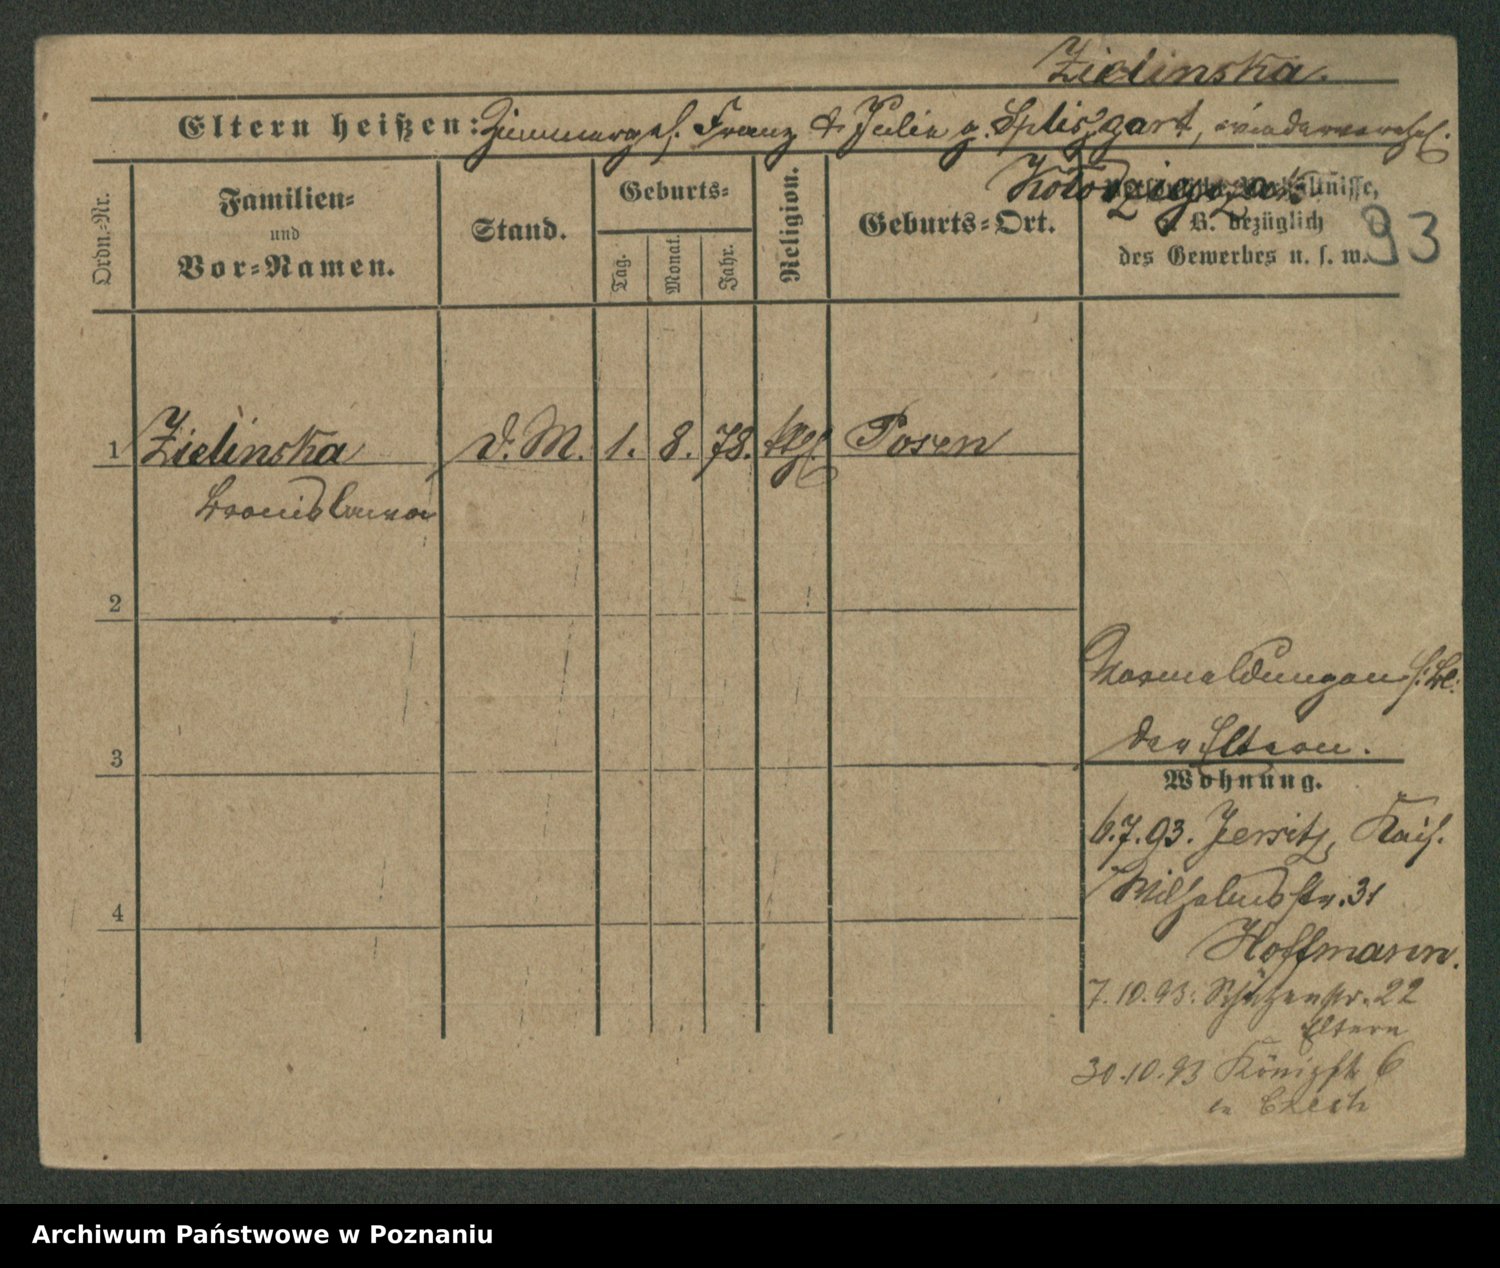 Zielinska.
Eltern heißen: Zimmerges. Franz & Julie g. Spliszgart, wiederverehel.
Kolodziejczak
93
Ordn.-Nr.
Familien-
und
Vor-Namen.
Stand.
Geburts-
Tag.
Monat.
Jahr.
Religion.
Geburts-Ort.
Verhältnisse,
z. B. bezüglich
des Gewerbes u. s. w.
1 Zielinska d. M. 1. 8. 78. kth. Posen
Bronislawa
2
3
4
Vormeldungen s. bei
den Eltern.
Wohnung.
6.7.93. Jersitz, Kais.
Wilhelmstr. 31
Hoffmann.
7.10.93. Schützenstr. 22
Eltern
30.10.93 Königstr 6
Archiwum Państwowe w Poznaniu